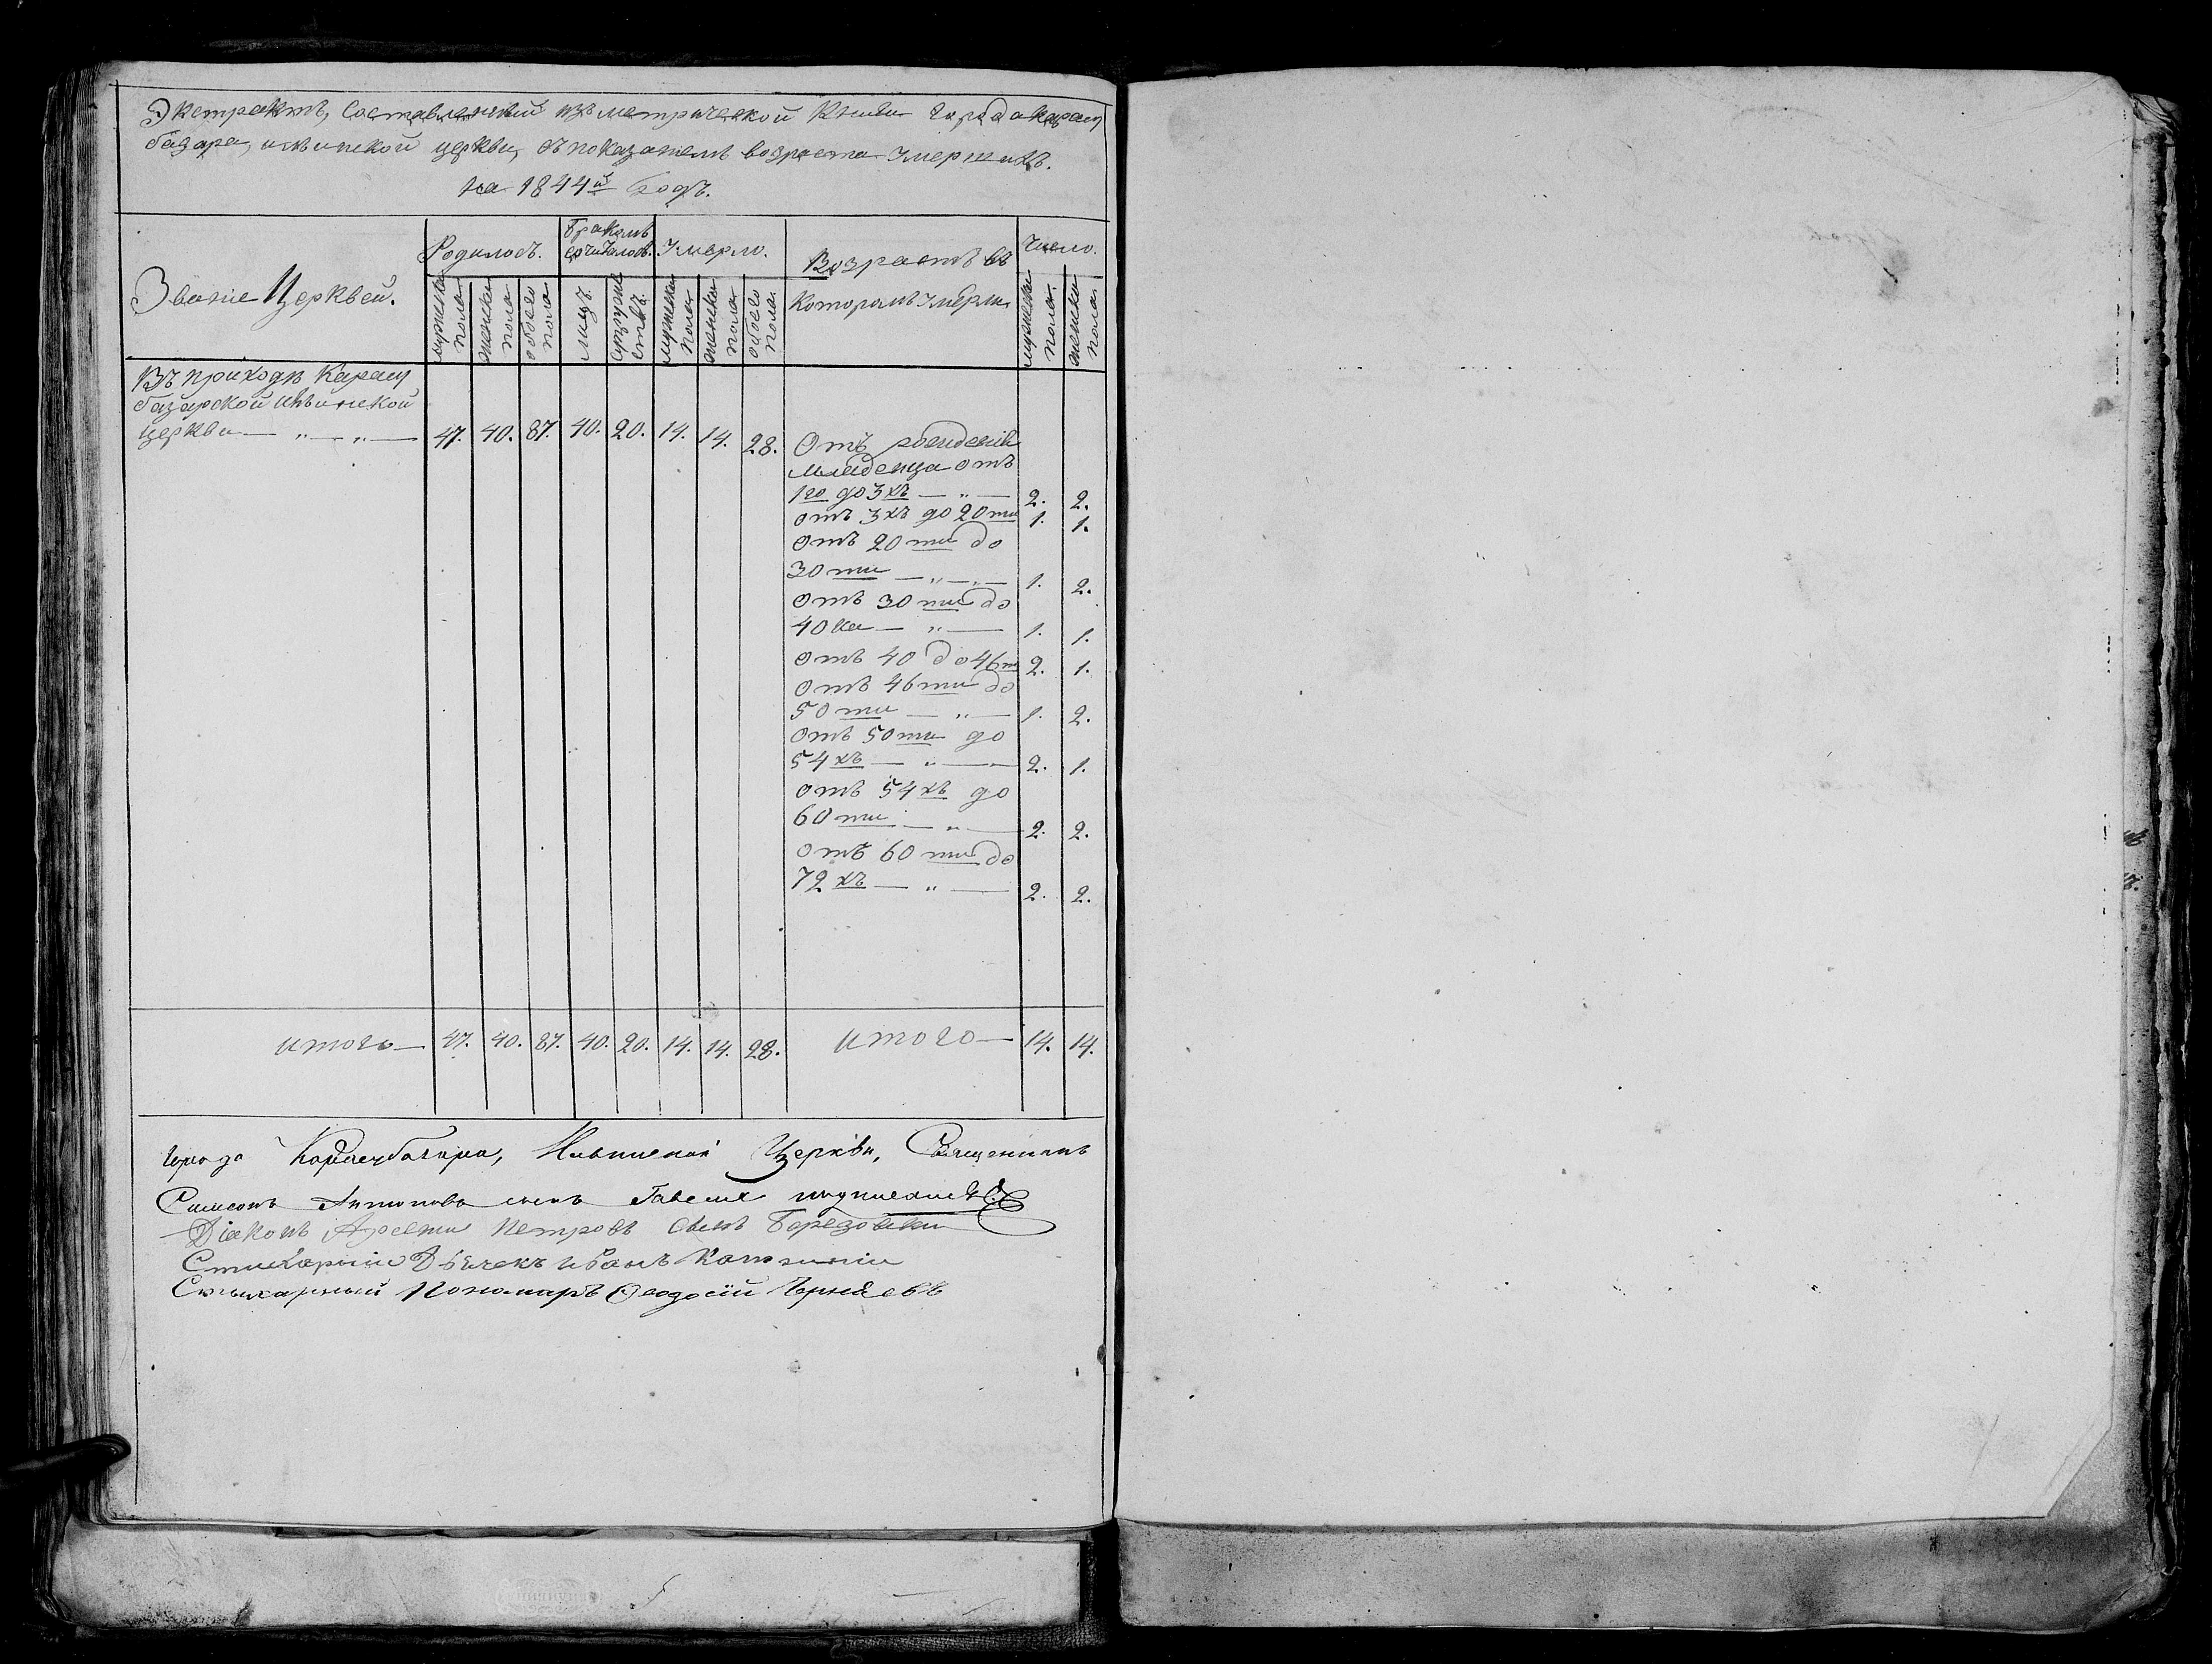 Экстрактъ, Составленный изъ метрической Книги города карасу
базара, ильинской церкви, съ показателемъ возраста Умершихъ.
на 1844й Годъ.
Званіе Церквей.
Родилось.
Бракомъ
сочиталось.
Умерло.
Возрастъ въ
которомъ умерли
Число.
мужеска
пола.
женска
пола
обоего
пола
лицъ.
супруже
ствъ.
мужеска
пола
женска
пола
обоего
пола.
мужеска
пола.
женска
пола.
Въ приходѣ Карасу
базарской ильинской
церкви — „ — „ — 47. 40. 87. 40. 20. 14. 14. 28.
Отъ рожденія
младенца отъ
1го до 3хъ — „ — 2. 2.
отъ 3хъ до 20ти 1. 1.
Отъ 20ти до
30ти — „ — „ — 1. 2.
отъ 30ти до
40ка — „ — 1. 1.
отъ 40 до 46ти 2. 1.
отъ 46ти до
50ти — „ — 1. 2.
отъ 50ти до
54хъ — „ — 2. 1.
отъ 54хъ до
60ти — „ — 2. 2.
отъ 60ти до
72хъ — „ — 2. 2.
итого — 47. 40. 87. 40. 20. 14. 14. 28. итого — 14. 14.
города Карасубазара, Ильинской Церкви, Священникъ
Симеонъ Антоновъ сынъ
Діаконъ Петровъ сынъ
Стихарный Дьячекъ Иванъ
Стихарный Пономарь Феодосій Черняевъ